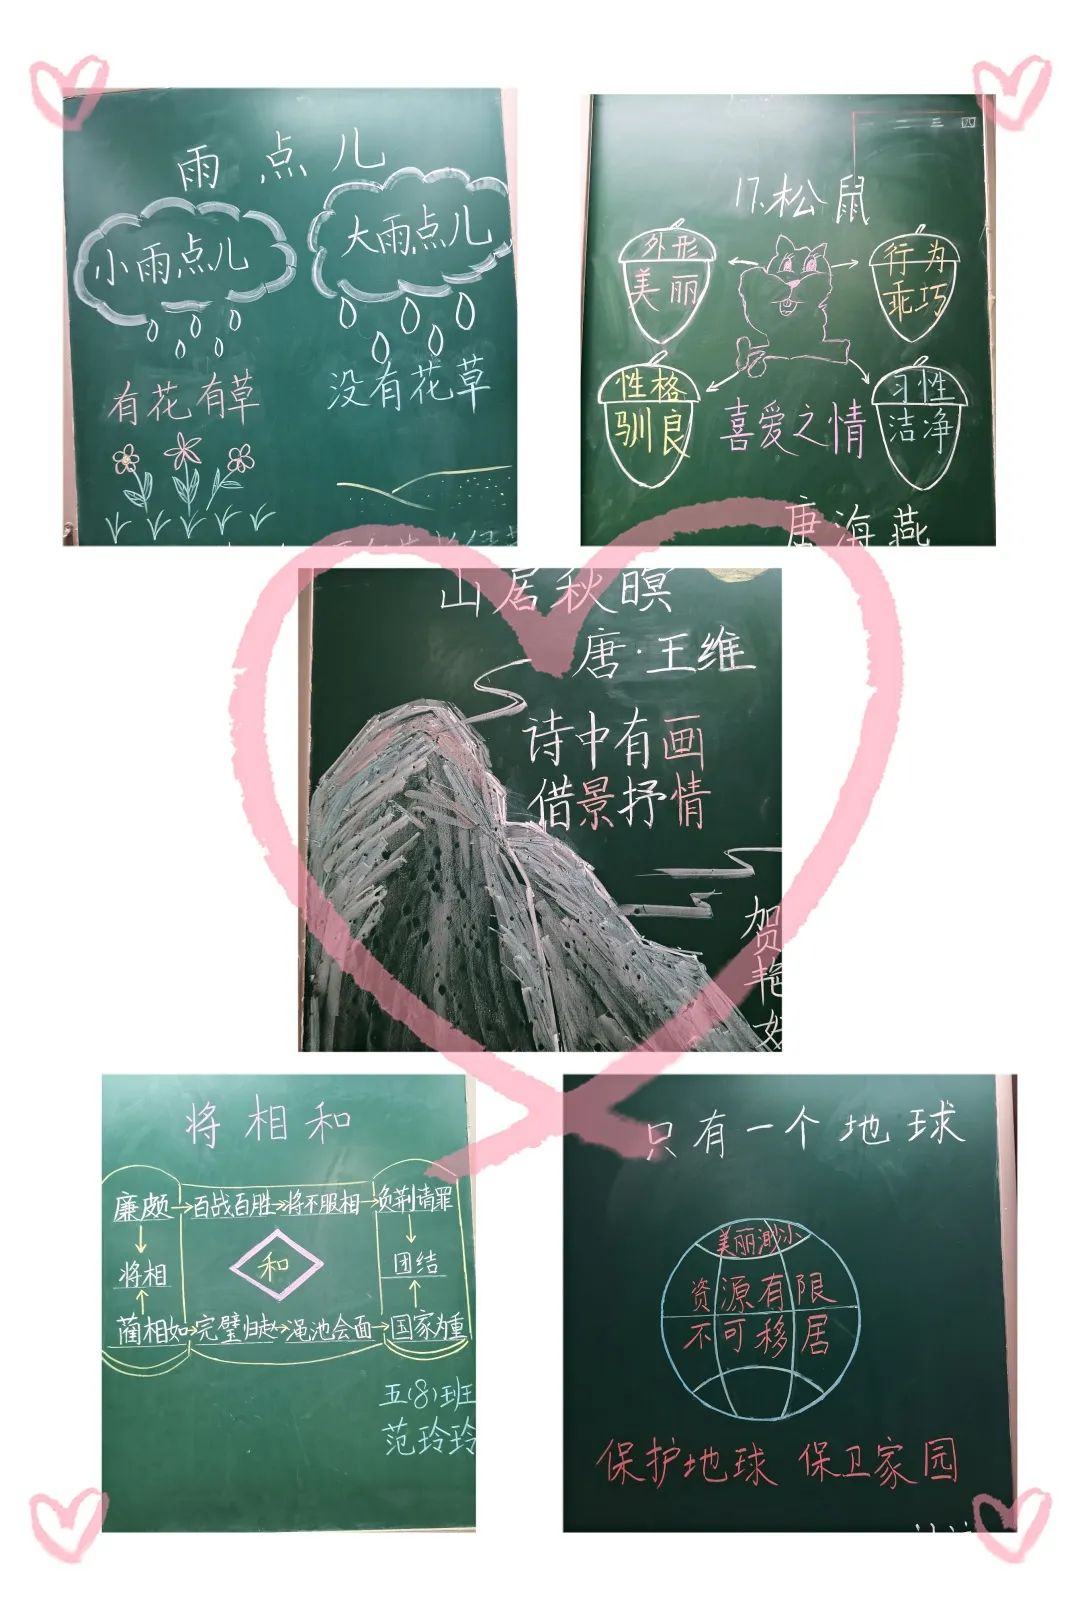 雨点儿
小雨点儿
大雨点儿
有花有草
没有花草
三 四
17.松鼠
外形
美丽
行为
乖巧
性格
驯良
习性
洁净
喜爱之情
唐海燕
山居秋暝
唐·王维
诗中有画
借景抒情
贺
艳
将相和
廉颇→百战百胜→将不服相→负荆请罪
将相
和
团结
蔺相如→完璧归赵→渑池会面→国家为重
五(8)班
范玲玲
只有一个地球
美丽渺小
资源有限
不可移居
保护地球 保卫家园